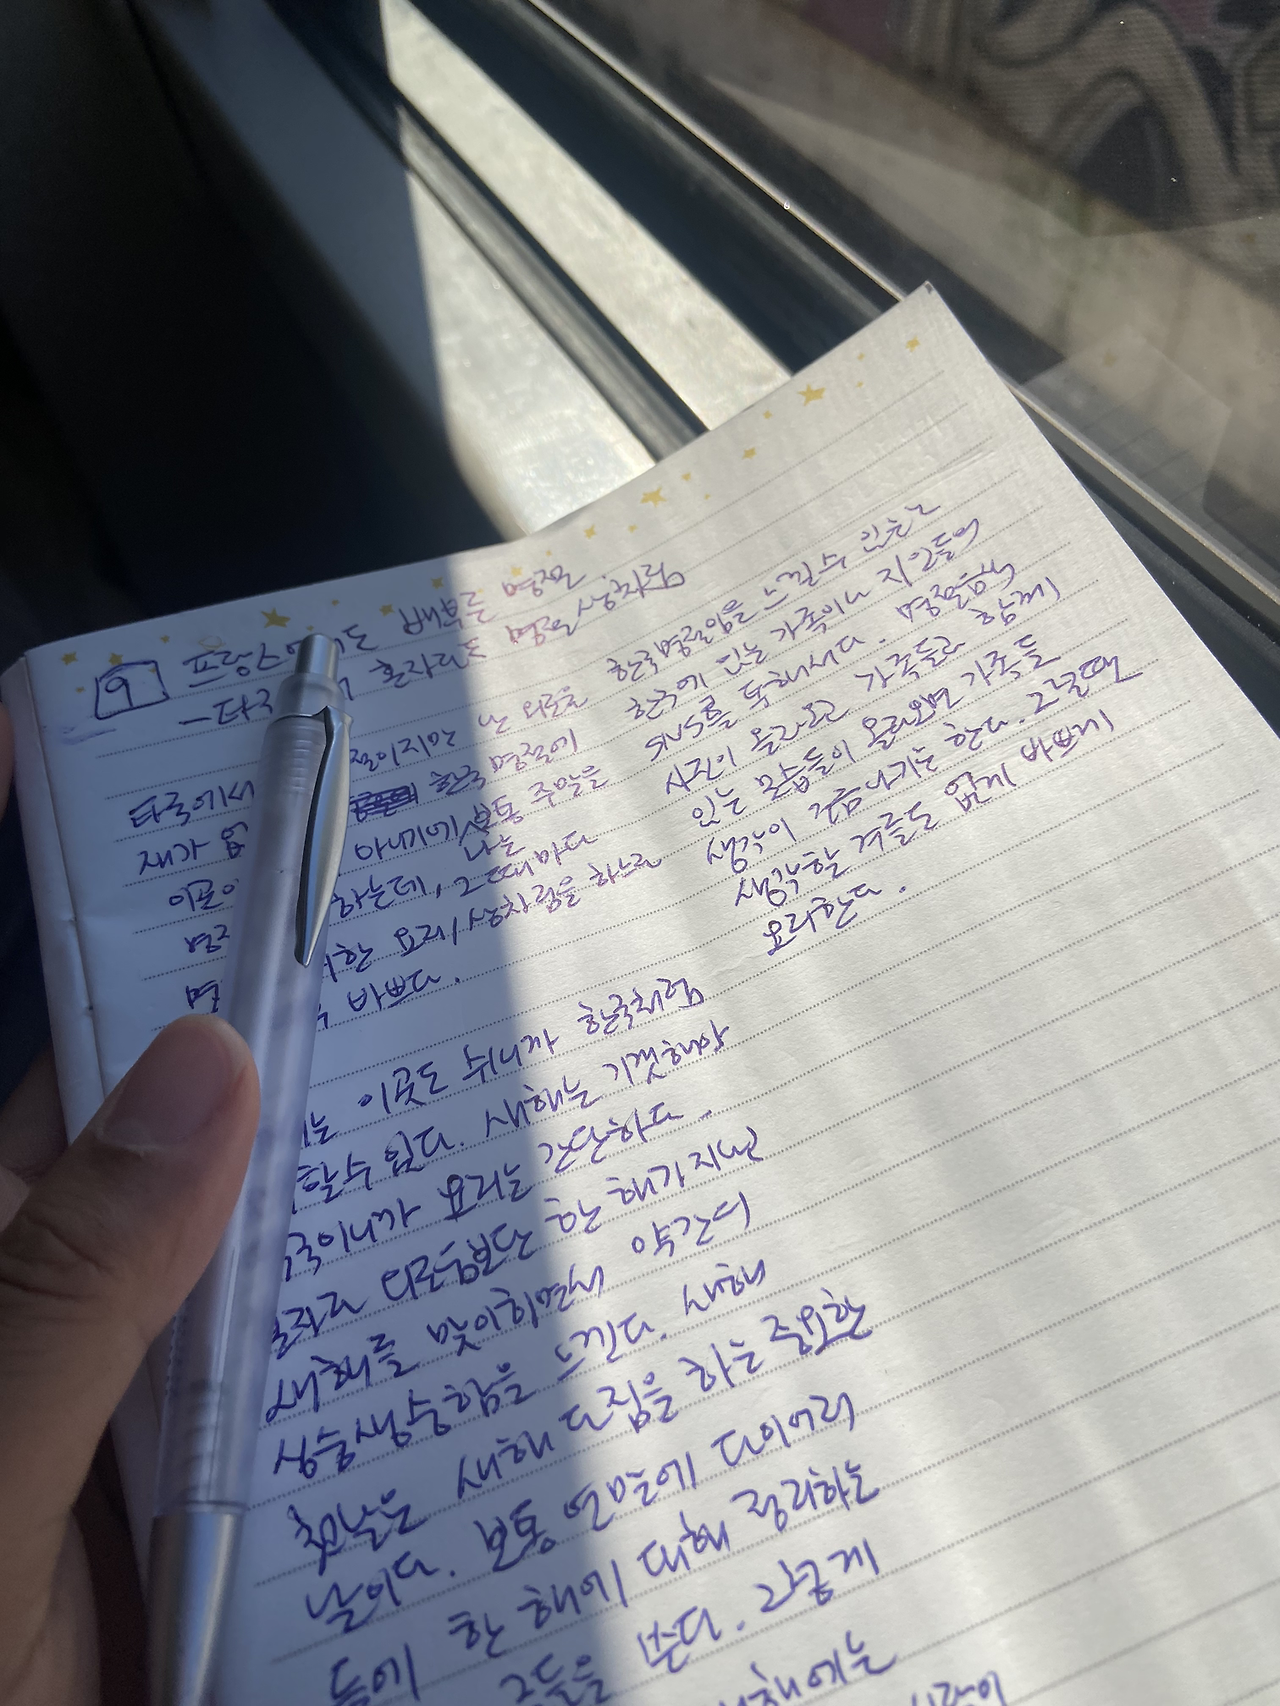 9 프랑스에서도 바쁜 명절
- 타국 혼자라도 명절은 상차림
타국에서 절이지만 난 외로울
재가 없 한국 명절에
이곳 아니기에 보통 주말을
나는
하는데, 그 때마다
한 요리/상차림을 하느라
바쁘다.
는 이곳도 쉬니까 한국처럼
할수 있다. 새해는 기껏해야
국이니까 요리는 간단하다.
혼자라 외로움보단 한 해가 지났
새해를 맞이하면서 약간의
싱숭생숭함을 느낀다. 새해
첫날은 새해 다짐을 하는 중요한
날이다. 보통 연말에 다이어리
들에 한 해에 대해 정리하는
글들을 쓴다. 그렇게
새해에는
한국명절임을 느낄수 있는건
한국에 있는 가족이나 지인들이
SNS를 통해서다. 명절음식
사진이 올라오고 가족들과 함께
있는 모습들이 올라오면 가족들
생각이 조금 나기는 한다. 그럴때면
생각할 겨를도 없게 바쁘게
요리한다.